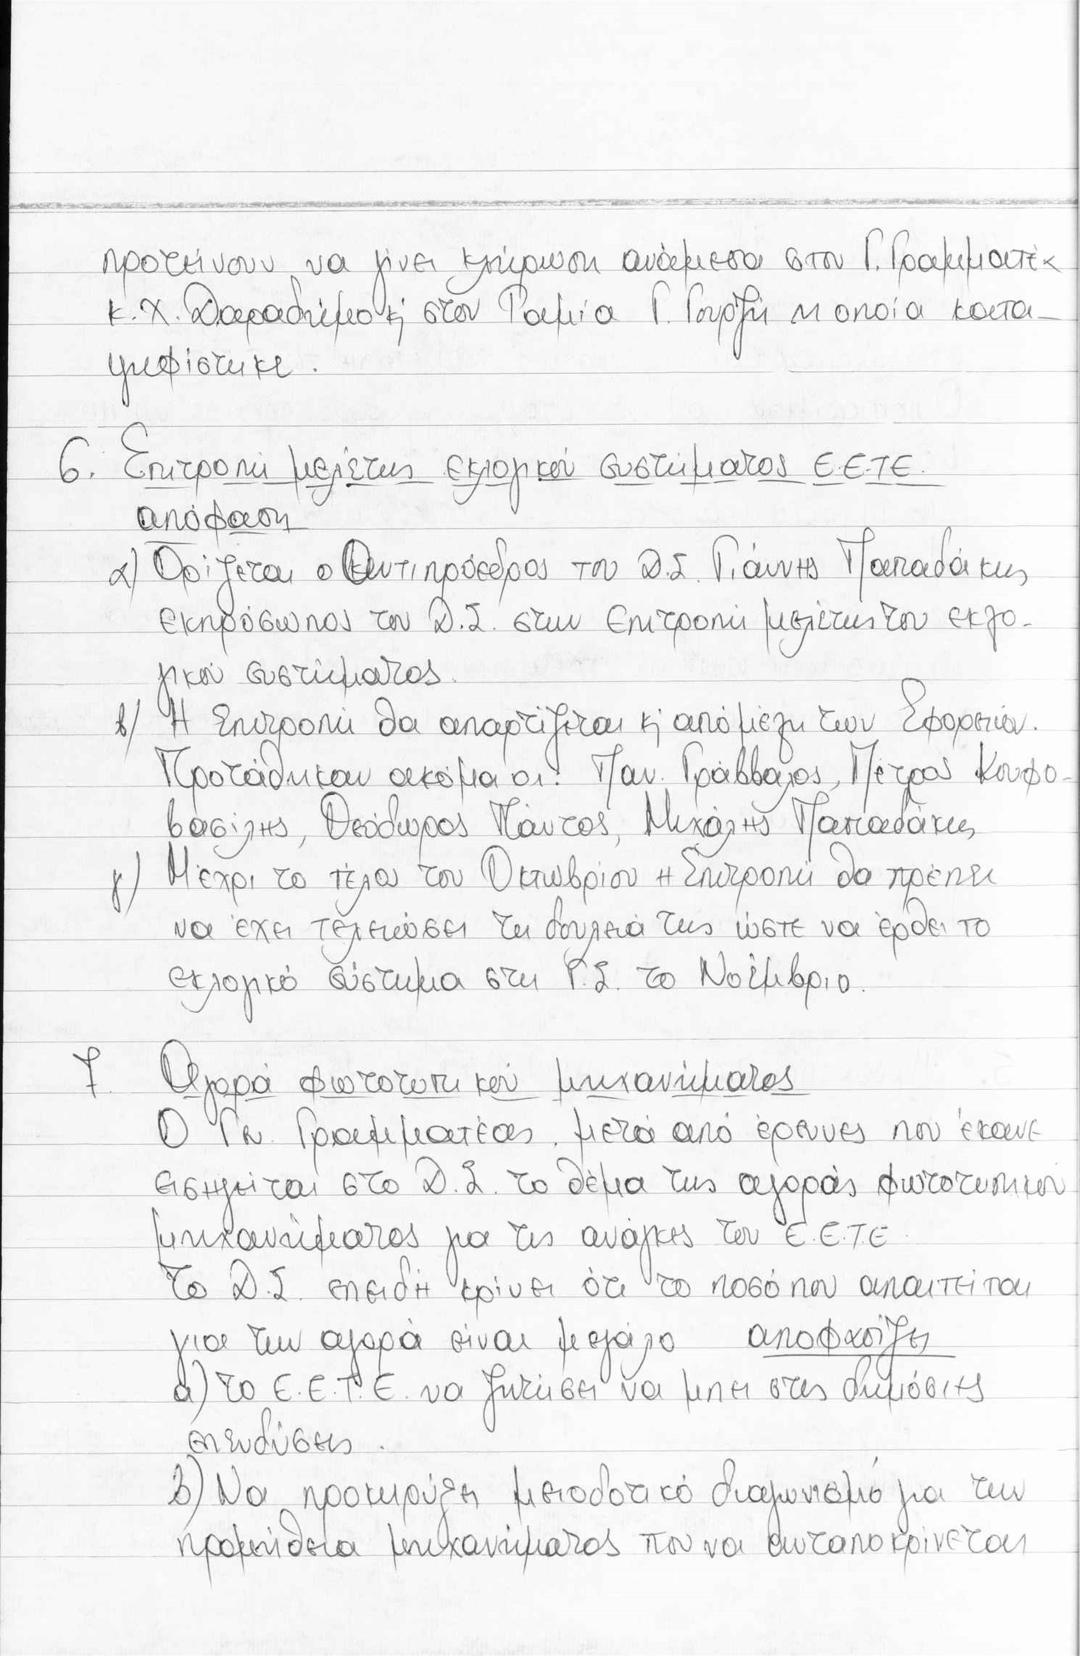 προτείνουν να γίνει κλήρωση ανάμεσα στον Γ. Γραμματέα
κ. Χ. Δαραδήμο κ̧ στον Ταμία Γ. Γουρζή η οποία κατα-
ψηφίστηκε.
6. Επιτροπή μελέτης εκλογικού συστήματος Ε.Ε.ΤΕ.
απόφαση
α) Ορίζεται ο Αντιπρόεδρος του Δ.Σ. Γιάννης Παπαδάκης
εκπρόσωπος του Δ.Σ. στην Επιτροπή μελέτης του εκλο-
γικού συστήματος.
β) Η Επιτροπή θα απαρτίζεται κ̧ από μέλη των Εφορειών.
Προτάθηκαν ακόμα οι: Παν. Γράββαλος, Πέτρος Κουφο-
βασίλης, Θεόδωρος Πάντος, Μιχάλης Παπαδάκης
γ) Μέχρι το τέλος του Οκτωβρίου η Επιτροπή θα πρέπει
να έχει τελειώσει τη δουλειά της ώστε να έρθει το
εκλογικό σύστημα στη Γ.Σ. το Νοέμβριο.
7. Αγορά φωτοτυπικού μηχανήματος
Ο Γεν. Γραμματέας, μετά από έρευνες που έκανε
εισηγείται στο Δ.Σ. το θέμα της αγοράς φωτοτυπικού
μηχανήματος για τις ανάγκες του Ε.Ε.ΤΕ.
Το Δ.Σ. επειδή κρίνει ότι το ποσό που απαιτείται
για την αγορά είναι μεγάλο αποφασίζει
α) το Ε.Ε.Τ.Ε. να ζητήσει να μπει στις δημόσιες
επενδύσεις.
β) Να προκηρύξει μειοδοτικό διαγωνισμό για την
προμήθεια μηχανήματος που να ανταποκρίνεται